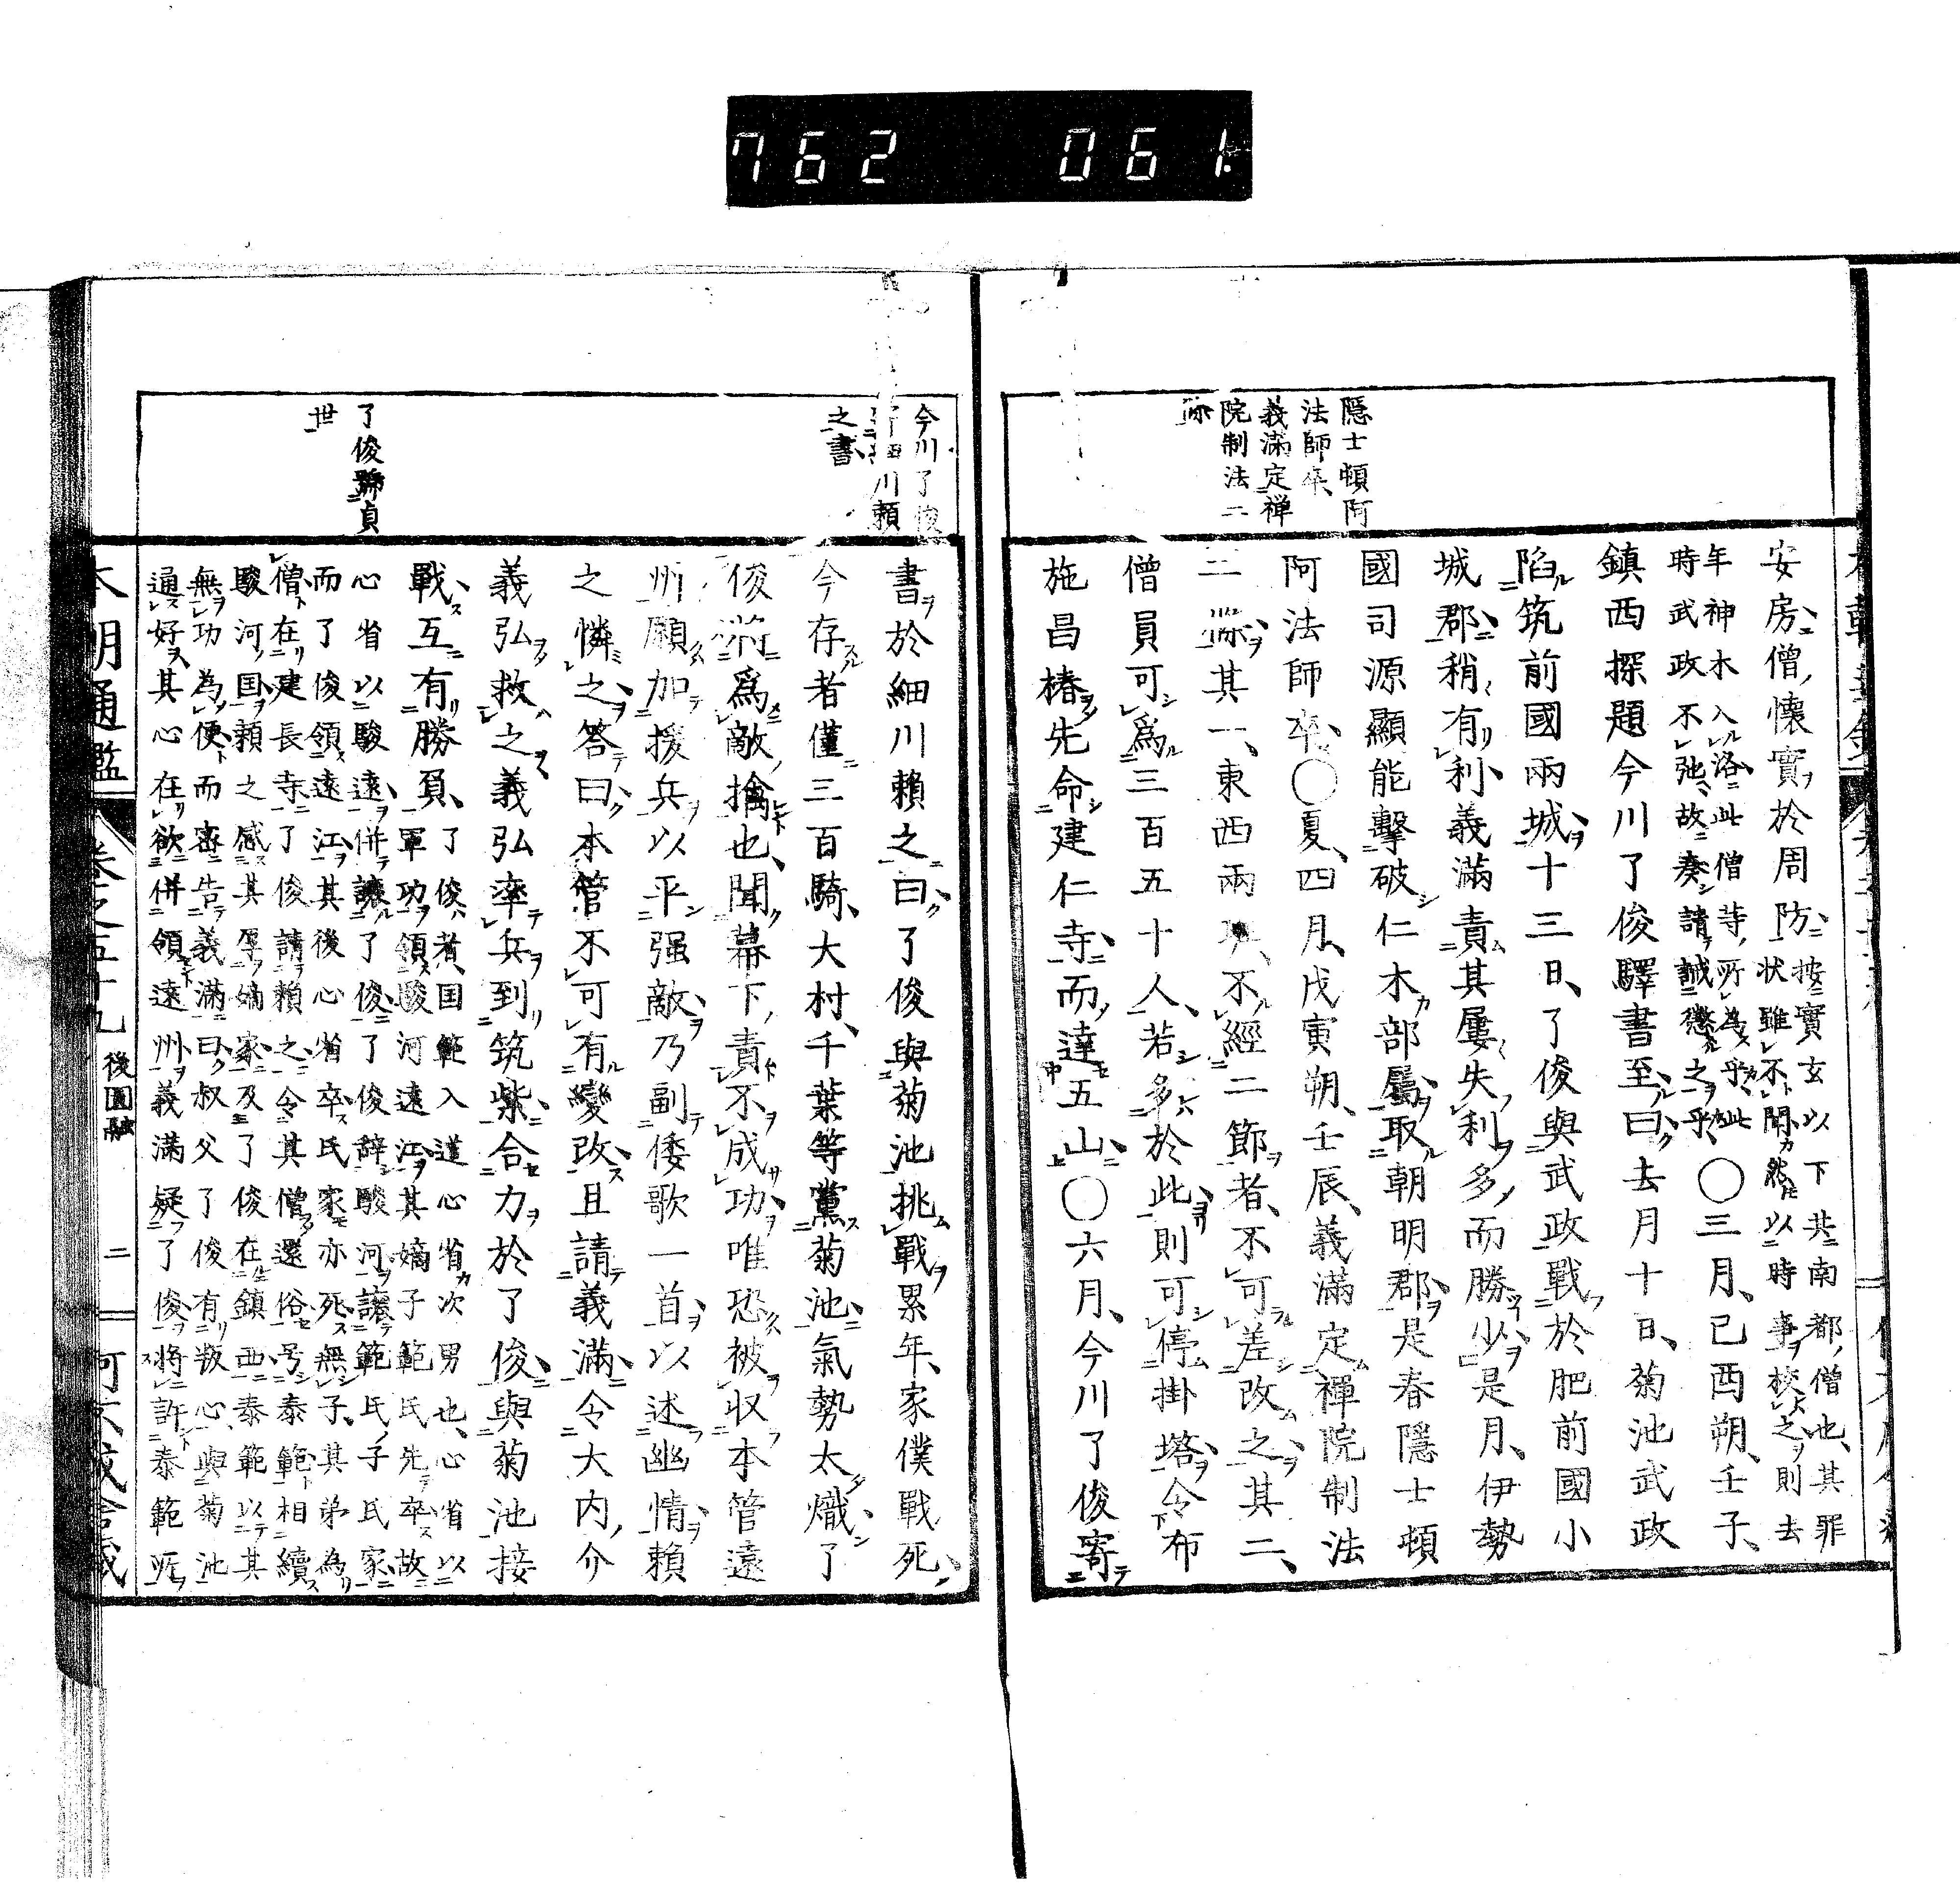 762 061
隱士頓阿
法師卒
義滿定禅
院制法二
條
安房僧懷實於周防按實玄以下共南都僧也其罪
状雖不聞然以時事挍之則去
年神木入洛此僧等所為乎此
時武政不弛故奏請誠懲之乎〇三月己酉朔壬子
鎮西探題今川了俊驛書至曰去月十日菊池武政
陷筑前國兩城十三日了俊與武政戰於肥前國小
城郡稍有利義滿責其屢失利多而勝少是月伊勢
國司源顯能擊破仁木部屬取朝明郡是春隱士頓
阿法師卒〇夏四月戊寅朔壬辰義滿定禪院制法
二條其一東西兩班不經二節者不可差改之其二
僧員可爲三百五十人若多於此則可停掛塔令布
施昌椿先命建仁寺而達五山〇六月今川了俊寄
今川了俊
寄細川賴
之書
了俊號貞
世
書於細川賴之曰了俊與菊池挑戰累年家僕戰死
今存者僅三百騎大村千葉等黨菊池氣勢太熾了
俊將爲敵擒也聞幕下責不成功唯恐被収本管遠
州願加援兵以平强敵乃副倭歌一首以述幽情賴
之憐之答曰本管不可有變改且請義滿令大内介
義弘救之義弘率兵到筑紫合力於了俊與菊池接
戰互有勝負了俊者国範入道心省次男也心省以
軍功領駿河遠江其嫡子範氏先卒故
心省以駿遠併讓了俊了俊辞駿河讓範氏子氏家
而了俊領遠江其後心省卒氏家亦死無子其弟為
僧在建長寺了俊請賴之令其僧還俗号泰範相續
駿河国賴之感其厚嫡家及了俊在鎮西泰範以其
無功為便而密告義滿曰叔父了俊有叛心與菊池
通好其心在欲併領遠州義滿疑了俊将許泰範所
本朝通鑑 卷之五十九 後圓融 二